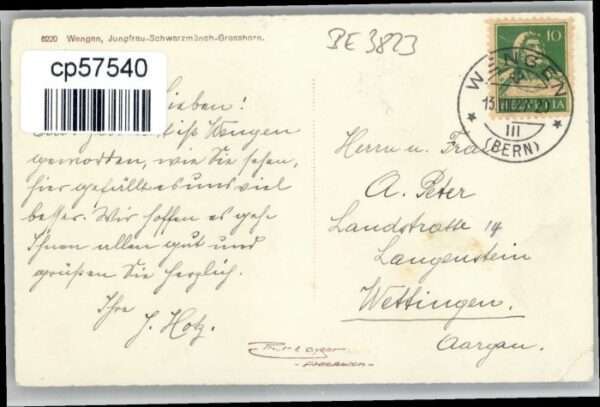 6220 Wengen, Jungfrau-Schwarzmönch-Grosshorn.
BE 3823
cp57540
10
HELVETIA
WENGEN
13.
III
(BERN)
Lieben!
ist Wengen
geworden, wie Sie sehen,
hier gefällt es uns viel
besser. Wir hoffen es geh
Ihnen allen gut und
grüßen Sie herzlich.
Ihre
J. Hotz.
Herrn u. Frau
A. Peter
Landstrasse 14
Langenstein
Wettingen.
Aargau.